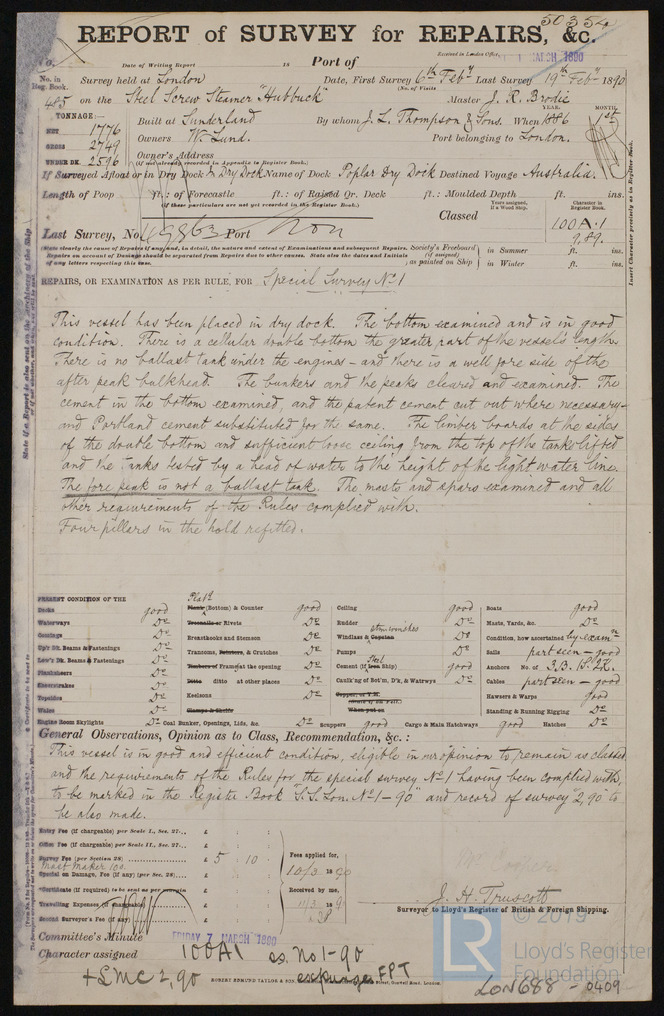 50354
REPORT of SURVEY for REPAIRS, &c.
Received in London Office,
MARCH 1890
No.
Date of Writing Report
18
Port of
No. in Reg. Book.
Survey held at London
Date, First Survey 6th Feby Last Survey 19th Feby 1890
(No. of Visits
485 on the Steel Screw Steamer "Hubbuck"
Master J. R. Brodie
TONNAGE:—
YEAR. MONTH.
Built at Sunderland By whom J. L. Thompson & Sons. When 1886 1st
NET 1776
GROSS 2749
UNDER DK. 2596
Owners W. Lund. Port belonging to London.
Owner's Address
(if not already recorded in Appendix to Register Book.)
If Surveyed Afloat or in Dry Dock In Dry Dock Name of Dock Poplar Dry Dock Destined Voyage Australia.
Length of Poop ft.: of Forecastle ft.: of Raised Qr. Deck ft.: Moulded Depth ft. ins.
(If these particulars are not yet recorded in the Register Book.)
Years assigned, if a Wood Ship.
Character in Register Book.
Classed 100A.1
9,89.
Last Survey, No. 69863 Port Lon
State clearly the cause of Repairs if any, and, in detail, the nature and extent of Examinations and subsequent Repairs. Repairs on account of Damage should be separated from Repairs due to other causes. State also the dates and Initials of any letters respecting this case.
Society's Freeboard (if assigned) as painted on Ship
in Summer ft. ins.
in Winter ft. ins.
Insert Character precisely as in Register Book.
REPAIRS, OR EXAMINATION AS PER RULE, FOR Special Survey No 1
This vessel has been placed in dry dock. The bottom examined and is in good
condition. There is a cellular double bottom the greater part of the vessel's length.
There is no ballast tank under the engines - and there is a well fore side of the
after peak bulkhead. The bunkers and the peaks cleared and examined. The
cement in the bottom examined, and the patent cement cut out where necessary-
and Portland cement substituted for the same. The limber boards at the sides
of the double bottom and sufficient loose ceiling from the top of the tanks lifted
and the tanks tested by a head of water to the height of the light water line.
The fore peak is not a ballast tank. The masts and spars examined and all
other requirements of the Rules complied with.
Four pillars in the hold refitted.
PRESENT CONDITION OF THE
Decks good
Waterways Do
Coamings Do
Up'r Dk. Beams & Fastenings Do
Low'r Dk. Beams & Fastenings Do
Plansheers Do
Sheerstrakes Do
Topsides Do
Wales Do
Engine Room Skylights Do
Plate
Plank (Bottom) & Counter good
Treenails or Rivets Do
Breasthooks and Stemson Do
Transoms, Pointers, & Crutches Do
Timbers of Frame at the opening Do
Ditto ditto at other places Do
Keelsons Do
Clamps & Shelfs
Coal Bunker, Openings, Lids, &c. Do
Ceiling good
Rudder Do
Windlass & Capstan Do
Pumps Do
Cement (if Steel Iron Ship) good
Caulk'g of Bot'm, D'k, & Watrwys Do
Copper, or Y.M.
When put on
Scuppers good Cargo & Main Hatchways good Hatches Do
Boats good
Masts, Yards, &c. Do
Condition, how ascertained by exam.n
Sails part seen - good
Anchors No. of 3.B. 1S. 2K.
Cables part seen - good
Hawsers & Warps good
Standing & Running Rigging Do
General Observations, Opinion as to Class, Recommendation, &c.:
This vessel is in good and efficient condition, eligible in our opinion to remain as classed
and the requirements of the Rules for the special survey No 1 having been complied with,
to be marked in the Register Book "S.S. Lon. No 1 - 90" and record of survey "2,90" to
be also made.
Entry Fee (if chargeable) per Scale I., Sec. 27... £ : :
Office Fee (if chargeable) per Scale II., Sec. 27... £ : :
Survey Fee (per Section 28) £ 5 : 10 :
Special on Damage, Fee, if any (per Sec. 28) £
Certificate (if required) to be sent as per margin £
Travelling Expenses (if chargeable) £
Second Surveyor's Fee (if any) £
Fees applied for,
10/3 1890
Received by me,
11/3 1890
J. H. Truscott
Surveyor to Lloyd's Register of British & Foreign Shipping.
Committee's Minute FRIDAY 7 MARCH 1890
Character assigned 100A1 ss. No 1-90
+LMC 2,90 expunge FPT
ROBERT EDMUND TAYLOR & SON
LON688 - 0409
© 2019
LR
Lloyd's Register
Foundation